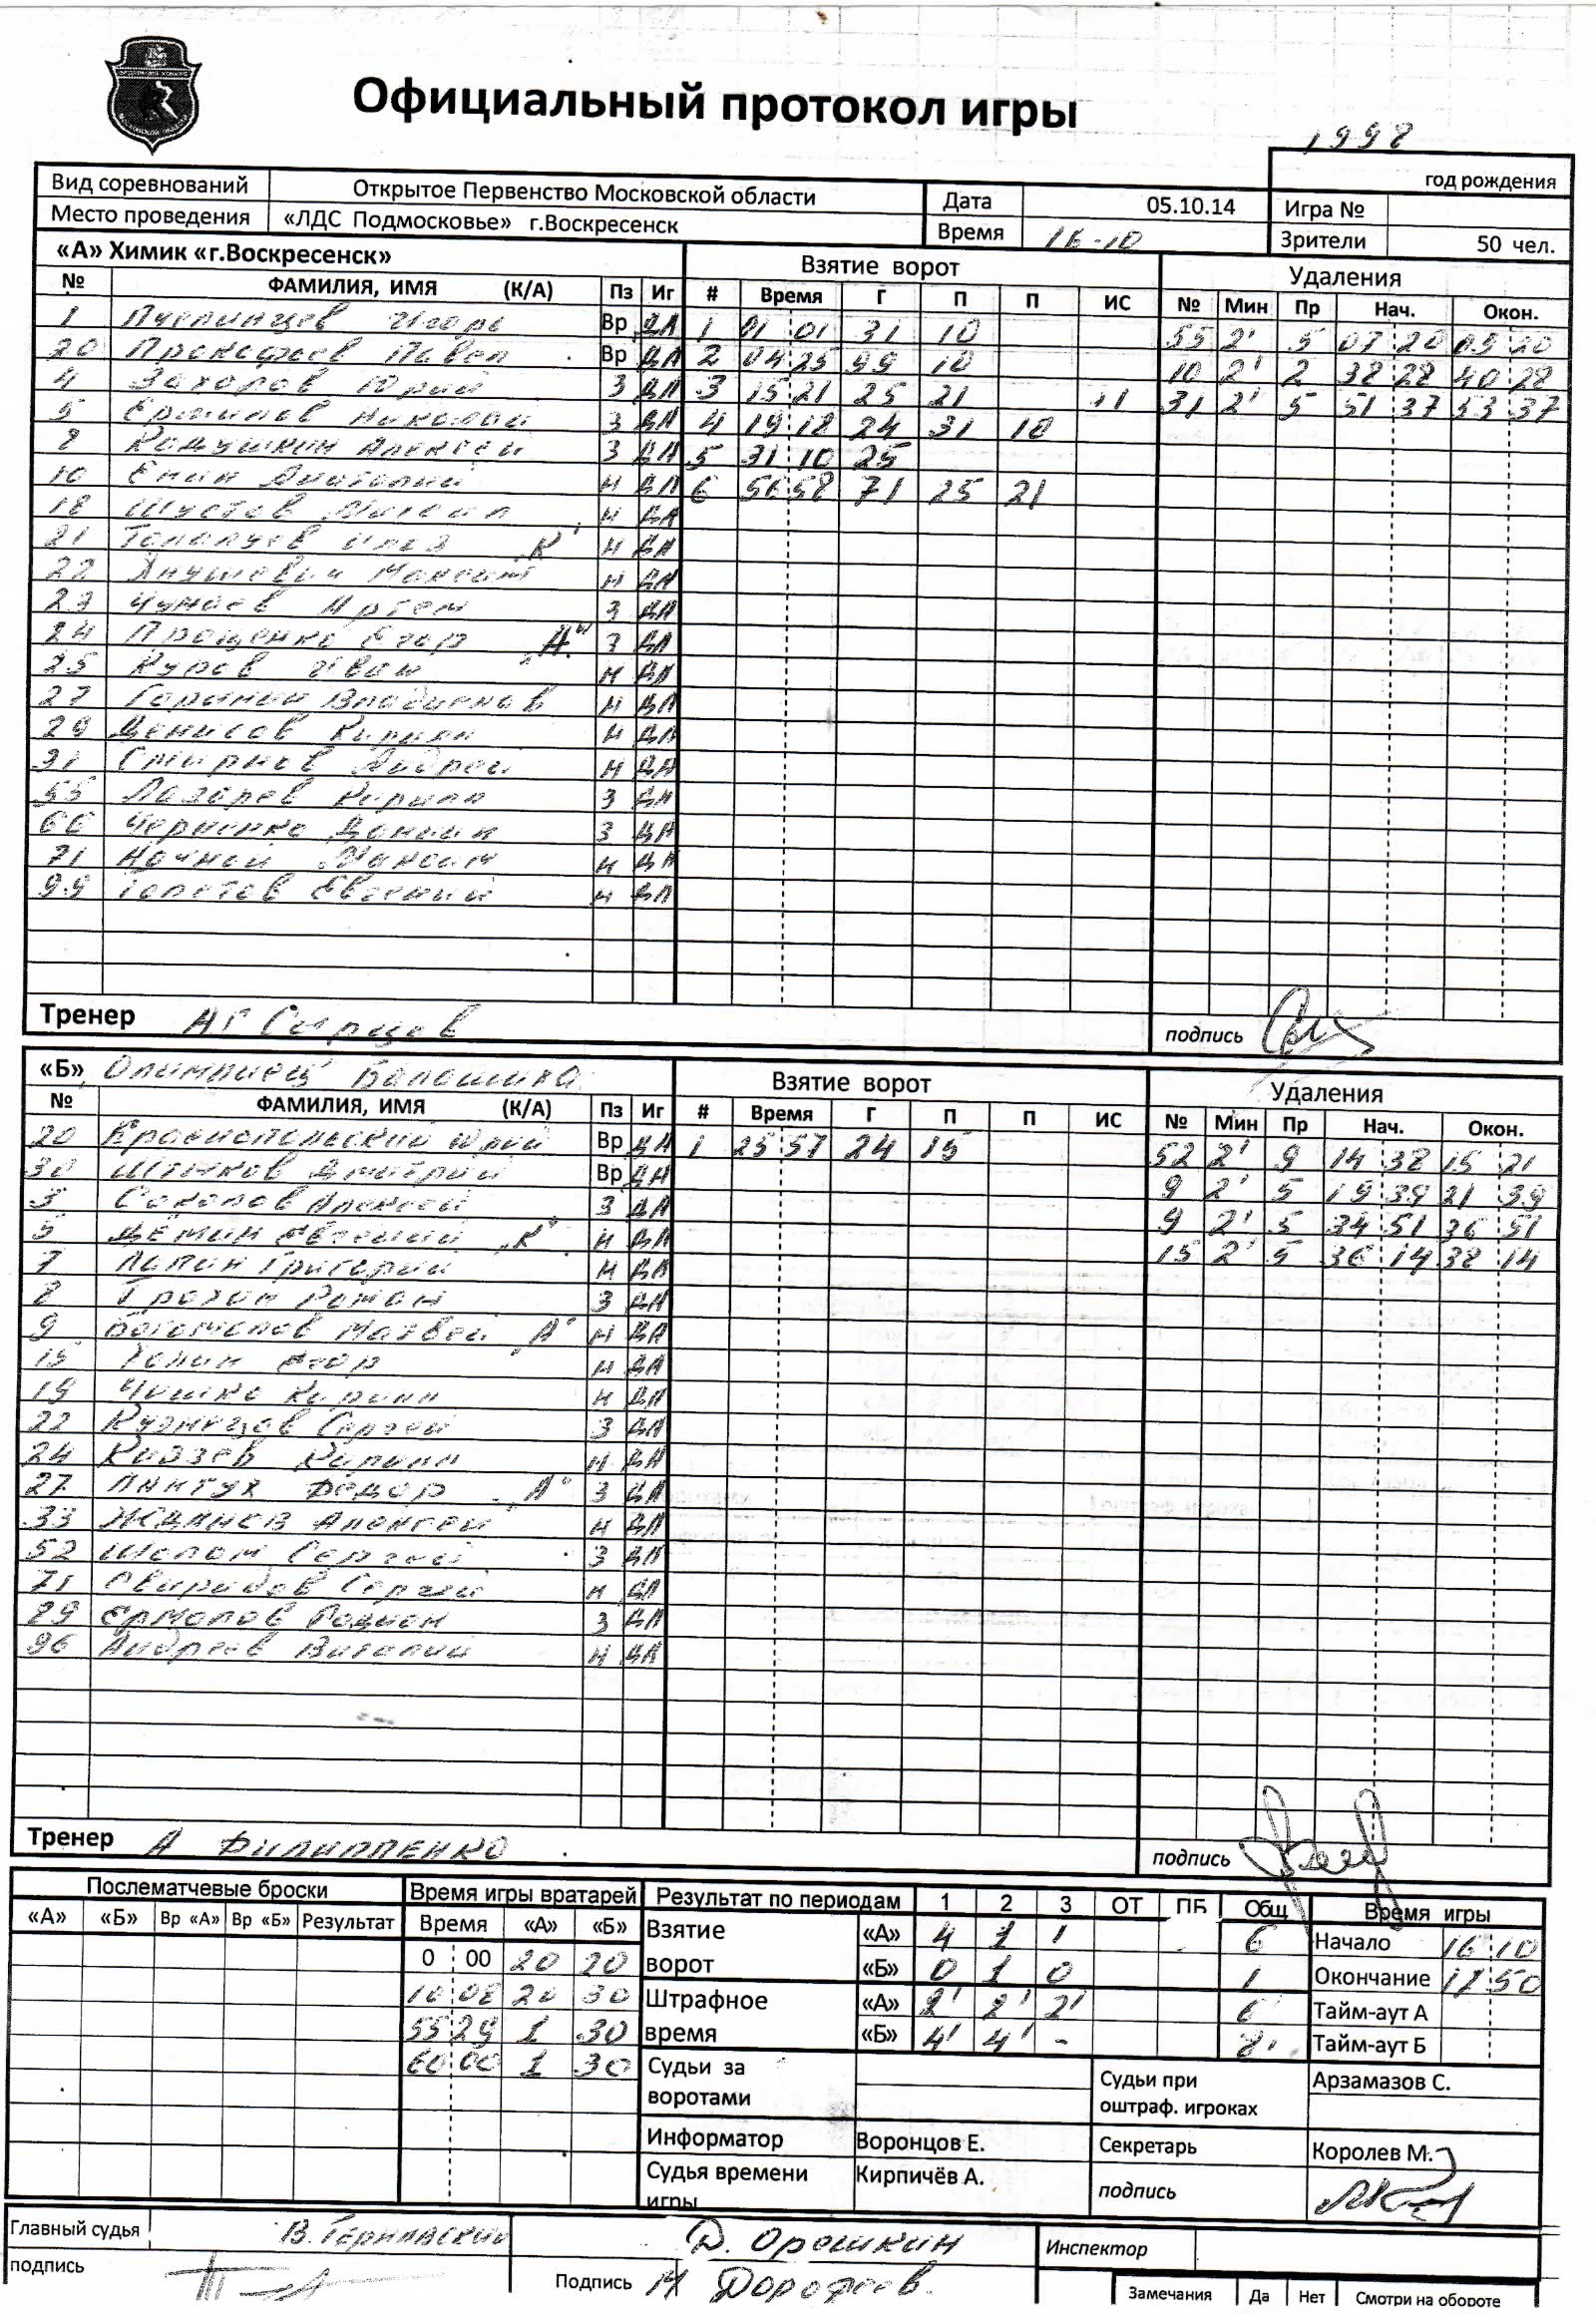 Официальный протокол игры
1998
год рождения
Вид соревнований Открытое Первенство Московской области Дата 05.10.14 Игра №
Место проведения «ЛДС Подмосковье» г.Воскресенск Время 16-10 Зрители 50 чел.
«А» Химик «г.Воскресенск» Взятие ворот Удаления
№ ФАМИЛИЯ, ИМЯ (К/А) Пз Иг # Время Г П П ИС № Мин Пр Нач. Окон.
1 Игорь Вр ДА 1 01 01 31 10 55 2' 5 07 20 09 20
20 Прокофьев Павел Вр ДА 2 04 25 99 10 10 2' 2 38 28 40 28
4 Захаров Юрий З ДА 3 15 21 25 21 +1 31 2' 5 51 37 53 37
5 Николай З ДА 4 19 18 24 31 10
8 Кадушкин Алексей З ДА 5 31 10 25
10 Енин Анатолий Н ДА 6 56 58 71 25 21
18 Шустов Михаил Н ДА
21 "К" Н ДА
22 Максим Н ДА
23 Чунаев Артем З ДА
24 Прощенко Егор "А" З ДА
25 Куров Иван Н ДА
27 Горынин Владислав Н ДА
29 Денисов Кирилл Н ДА
31 Смирнов Андрей Н ДА
55 Лазарев Кирилл З ДА
66 Черненко Даниил З ДА
71 Начной Максим Н ДА
99 Евгений Н ДА
Тренер подпись
«Б» Олимпиец Балашиха Взятие ворот Удаления
№ ФАМИЛИЯ, ИМЯ (К/А) Пз Иг # Время Г П П ИС № Мин Пр Нач. Окон.
20 Краснопольский Юрий Вр ДА 1 25 57 24 15 52 2' 9 14 38 15 21
30 Штыков Дмитрий Вр ДА 9 2' 5 19 39 21 39
3 Соколов Алексей З ДА 9 2' 5 34 51 36 51
5 Дёмин Евгений "К" Н ДА 15 2' 5 36 14 38 14
7 Лапин Григорий Н ДА
8 Роман З ДА
9 Богомолов Матвей "А" Н ДА
15 Егор Н ДА
19 Кирилл Н ДА
22 Кузнецов Сергей З ДА
24 Князев Кирилл Н ДА
27 Лантух Федор "А" З ДА
33 Жданов Алексей Н ДА
52 Сергей З ДА
71 Свиридов Сергей Н ДА
89 Ермолов Родион З ДА
96 Андреев Виталий Н ДА
Тренер А Филиппенко подпись
Послематчевые броски Время игры вратарей Результат по периодам 1 2 3 ОТ ПБ Общ Время игры
«А» «Б» Вр «А» Вр «Б» Результат Время «А» «Б» Взятие «А» 4 1 1 6 Начало 16 10
0 00 20 20 ворот «Б» 0 1 0 1 Окончание 17 50
10 08 20 30 Штрафное «А» 2' 2' 2' 6' Тайм-аут А
55 29 1 30 время «Б» 4' 4' - 8' Тайм-аут Б
60 00 1 30 Судьи за воротами Судьи при оштраф. игроках Арзамазов С.
Информатор Воронцов Е. Секретарь Королев М.
Судья времени игры Кирпичёв А. подпись
Главный судья Д. Орешкин Инспектор
подпись Подпись М Дорофеев. Замечания Да Нет Смотри на обороте